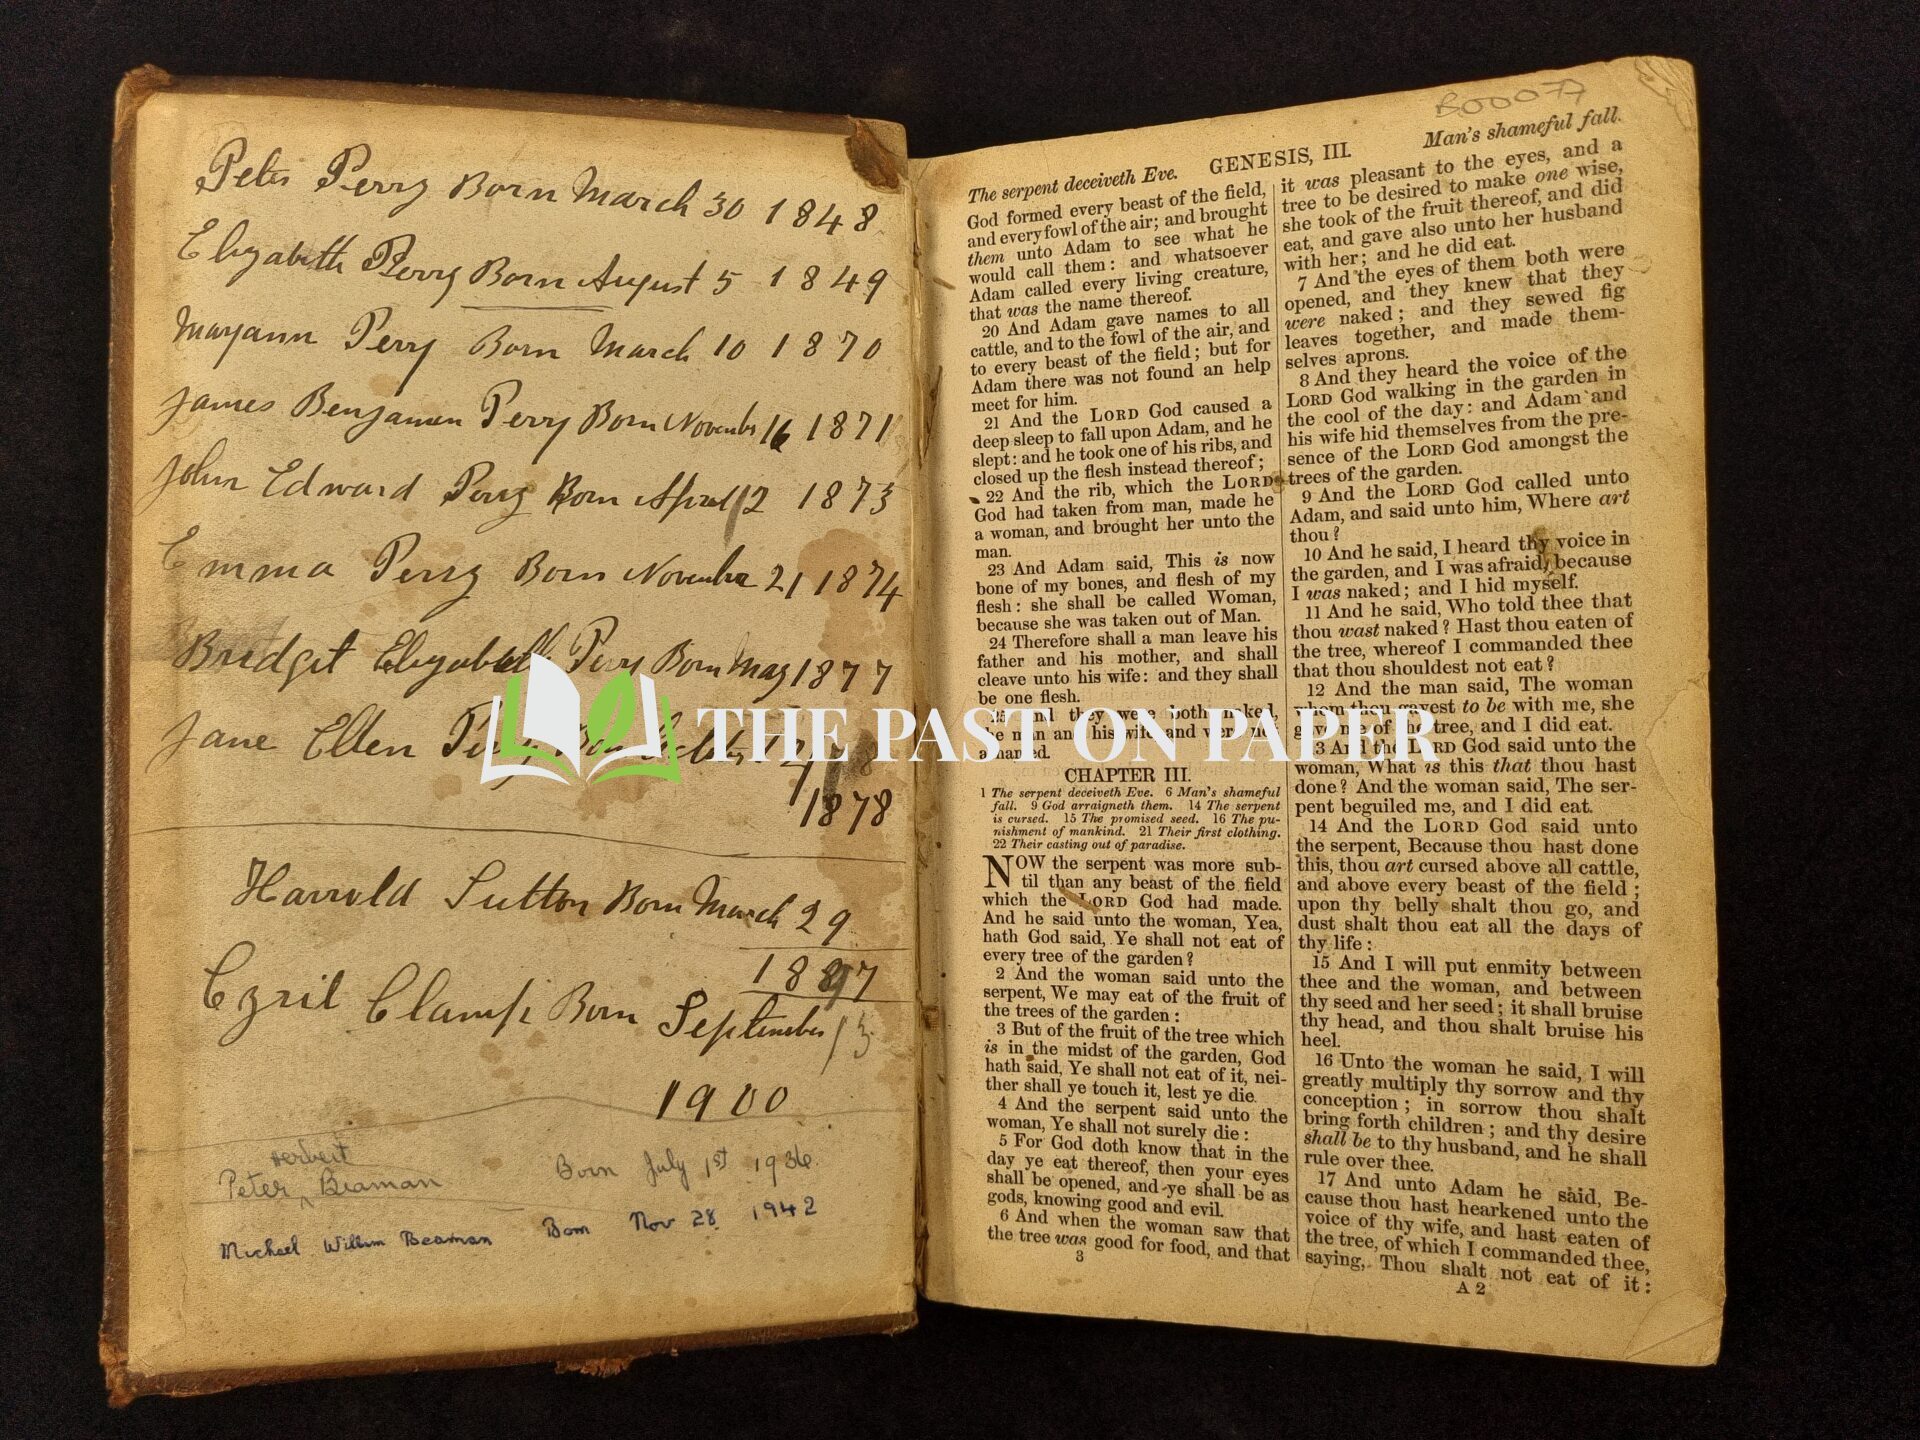 Peter Perry Born March 30 1848
Elizabeth Perry Born August 5 1849
Maryann Perry Born March 10 1870
James Benjamen Perry Born November 16 1871
John Edward Perry Born April 12 1873
Emma Perry Born November 21 1874
Bridget Elizabeth Perry Born May 1877
Jane Ellen Perry Born
1878
Harrold Sutton Born March 29
1897
Cyril Clamp Born September 13
1900
Herbert
Peter Beaman Born July 1st 1936
Michael William Beaman Born Nov 28 1942
THE PAST ON PAPER
B00077
The serpent deceiveth Eve. GENESIS, III. Man's shameful fall.
God formed every beast of the field,
and every fowl of the air; and brought
them unto Adam to see what he
would call them: and whatsoever
Adam called every living creature,
that was the name thereof.
20 And Adam gave names to all
cattle, and to the fowl of the air, and
to every beast of the field; but for
Adam there was not found an help
meet for him.
21 And the LORD God caused a
deep sleep to fall upon Adam, and he
slept: and he took one of his ribs, and
closed up the flesh instead thereof;
22 And the rib, which the LORD
God had taken from man, made he
a woman, and brought her unto the
man.
23 And Adam said, This is now
bone of my bones, and flesh of my
flesh: she shall be called Woman,
because she was taken out of Man.
24 Therefore shall a man leave his
father and his mother, and shall
cleave unto his wife: and they shall
be one flesh.
25 And they were both naked,
the man and his wife, and were not
ashamed.
CHAPTER III.
1 The serpent deceiveth Eve. 6 Man's shameful
fall. 9 God arraigneth them. 14 The serpent
is cursed. 15 The promised seed. 16 The pu-
nishment of mankind. 21 Their first clothing.
22 Their casting out of paradise.
NOW the serpent was more sub-
til than any beast of the field
which the LORD God had made.
And he said unto the woman, Yea,
hath God said, Ye shall not eat of
every tree of the garden?
2 And the woman said unto the
serpent, We may eat of the fruit of
the trees of the garden:
3 But of the fruit of the tree which
is in the midst of the garden, God
hath said, Ye shall not eat of it, nei-
ther shall ye touch it, lest ye die.
4 And the serpent said unto the
woman, Ye shall not surely die:
5 For God doth know that in the
day ye eat thereof, then your eyes
shall be opened, and ye shall be as
gods, knowing good and evil.
6 And when the woman saw that
the tree was good for food, and that
3
it was pleasant to the eyes, and a
tree to be desired to make one wise,
she took of the fruit thereof, and did
eat, and gave also unto her husband
with her; and he did eat.
7 And the eyes of them both were
opened, and they knew that they
were naked; and they sewed fig
leaves together, and made them-
selves aprons.
8 And they heard the voice of the
LORD God walking in the garden in
the cool of the day: and Adam and
his wife hid themselves from the pre-
sence of the LORD God amongst the
trees of the garden.
9 And the LORD God called unto
Adam, and said unto him, Where art
thou?
10 And he said, I heard thy voice in
the garden, and I was afraid, because
I was naked; and I hid myself.
11 And he said, Who told thee that
thou wast naked? Hast thou eaten of
the tree, whereof I commanded thee
that thou shouldest not eat?
12 And the man said, The woman
whom thou gavest to be with me, she
gave me of the tree, and I did eat.
13 And the LORD God said unto the
woman, What is this that thou hast
done? And the woman said, The ser-
pent beguiled me, and I did eat.
14 And the LORD God said unto
the serpent, Because thou hast done
this, thou art cursed above all cattle,
and above every beast of the field;
upon thy belly shalt thou go, and
dust shalt thou eat all the days of
thy life:
15 And I will put enmity between
thee and the woman, and between
thy seed and her seed; it shall bruise
thy head, and thou shalt bruise his
heel.
16 Unto the woman he said, I will
greatly multiply thy sorrow and thy
conception; in sorrow thou shalt
bring forth children; and thy desire
shall be to thy husband, and he shall
rule over thee.
17 And unto Adam he said, Be-
cause thou hast hearkened unto the
voice of thy wife, and hast eaten of
the tree, of which I commanded thee,
saying, Thou shalt not eat of it:
A 2